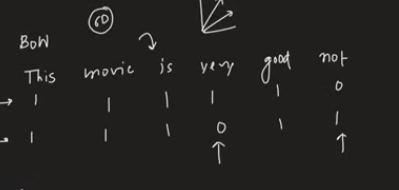 60
BoW
This movie is very good not
1 1 1 1 1 0
1 1 1 0 1 1